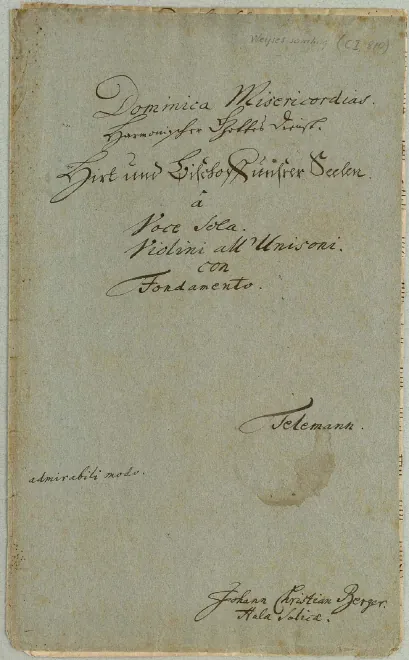 Weyses samling (C I, 510)
Dominica Misericordias.
Harmonischer Gottes Dienst.
Hirt und Bischoff unsrer Seelen.
à
Voce Sola.
Violini all' Unisoni.
con
Fondamento.
Telemann.
admirabili modo.
Johann Christian Berger.
Hala Salica.